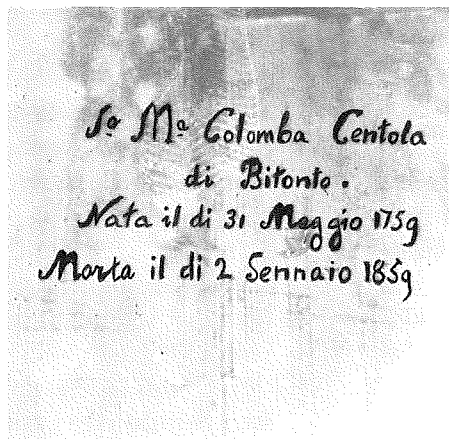 Sª Mª Colomba Centola
di Bitonto.
Nata il di 31 Maggio 1759
Morta il di 2 Gennaio 1859